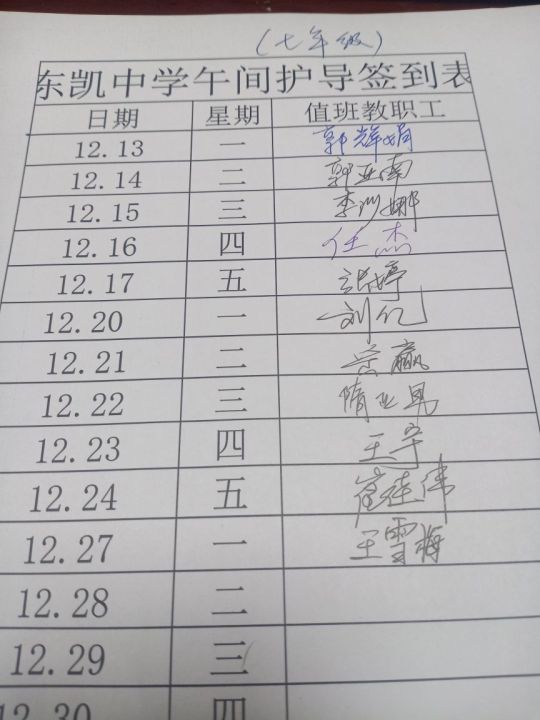 (七年级)
东凯中学午间护导签到表
日期 星期 值班教职工
12.13 一 郭辉娟
12.14 二 郭亚南
12.15 三 李训娜
12.16 四 任杰
12.17 五 张婷
12.20 一 刘亿
12.21 二 宗赢
12.22 三 隋业昆
12.23 四 王宇
12.24 五 崔建伟
12.27 一 王雪梅
12.28 二
12.29 三
12.30 四